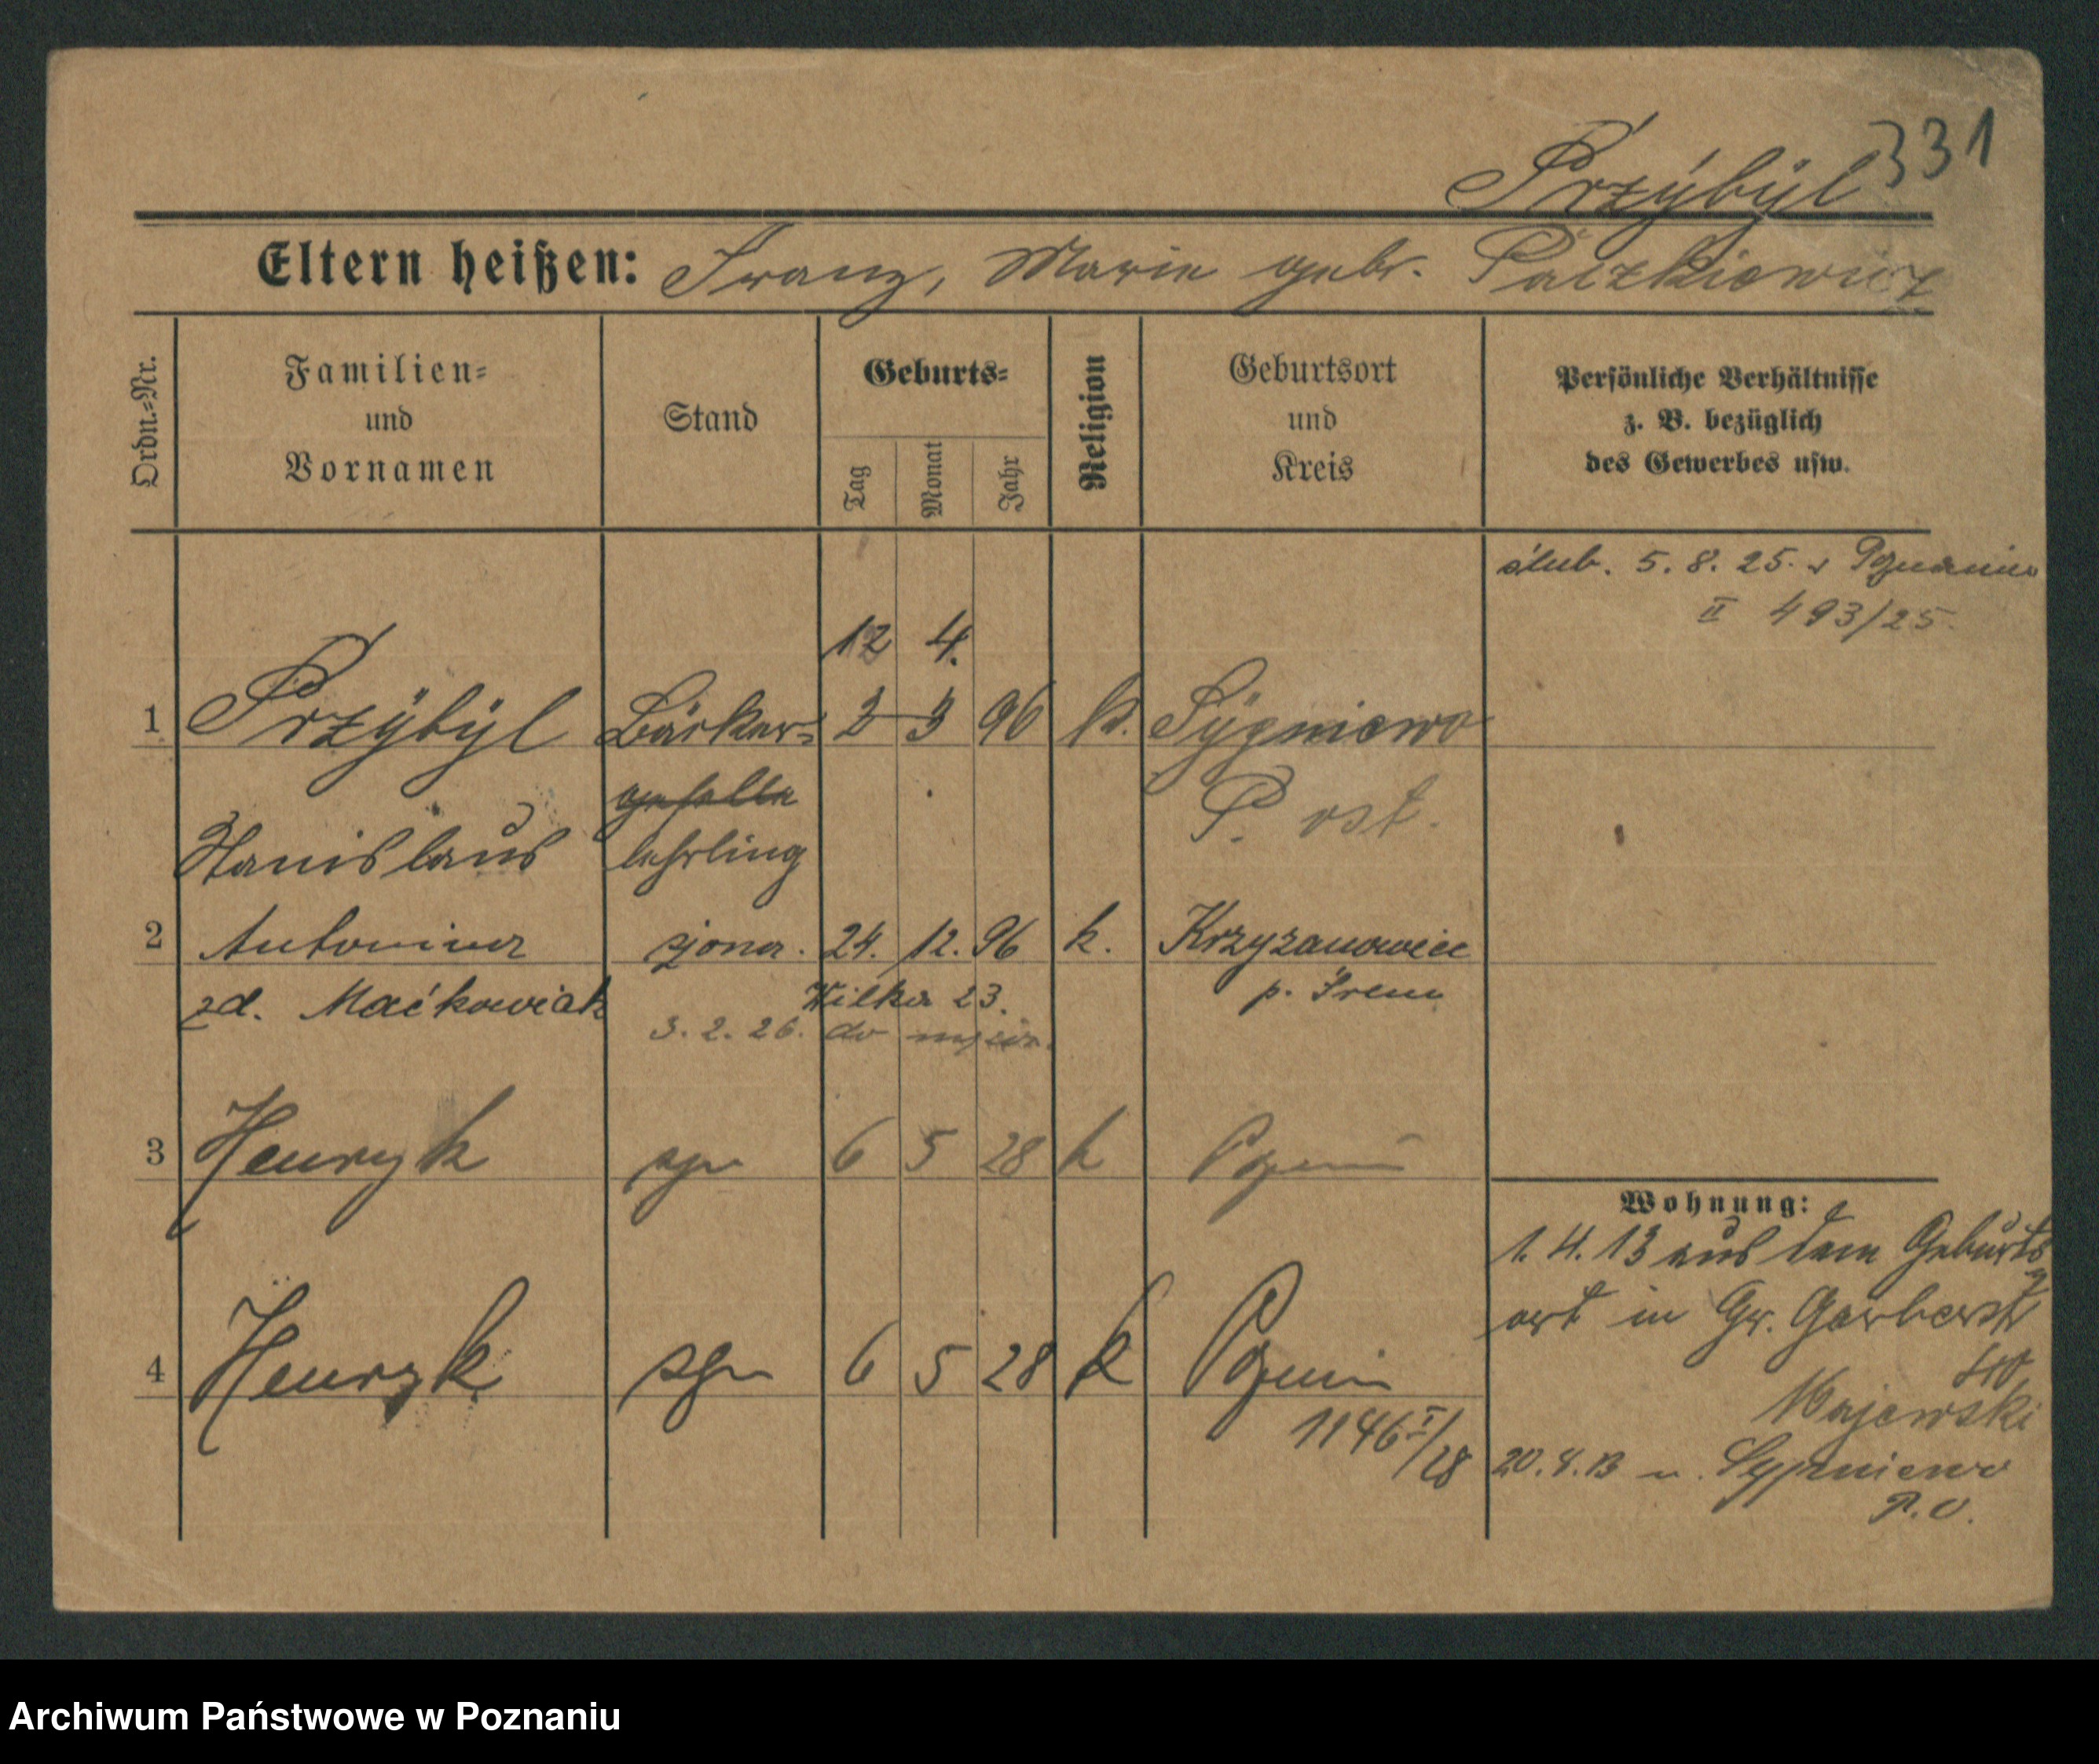 331
Przÿbÿl
Eltern heißen: Franz, Marie gebr. Patzkiewicz
Ordn.-Nr.
Familien-
und
Vornamen
Stand
Geburts-
Tag
Monat
Jahr
Religion
Geburtsort
und
Kreis
Persönliche Verhältnisse
z. B. bezüglich
des Gewerbes usw.
ślub. 5. 8. 25. w Poznaniu
II 493/25.
12 4.
1 Przÿbÿl Bäcker- 2 3 96 k. Sÿpniewo
geselle P. ost.
Stanislaus lehrling
2 Antonina żona. 24. 12. 96 k. Krzyżanowice
zd. Maćkowiak Wilka 23. p. Śrem
3. 2. 26. do
3 Henryk syn 6 5 28 k Poznań
Wohnung:
1. 4. 13 aus dem Geburts
ort in Gr. Gerberstr
40
4 Henryk syn 6 5 28 k Poznań
Majewski
1146 I/28
20. 8. 13 n. Sypniewo
P. O.
Archiwum Państwowe w Poznaniu